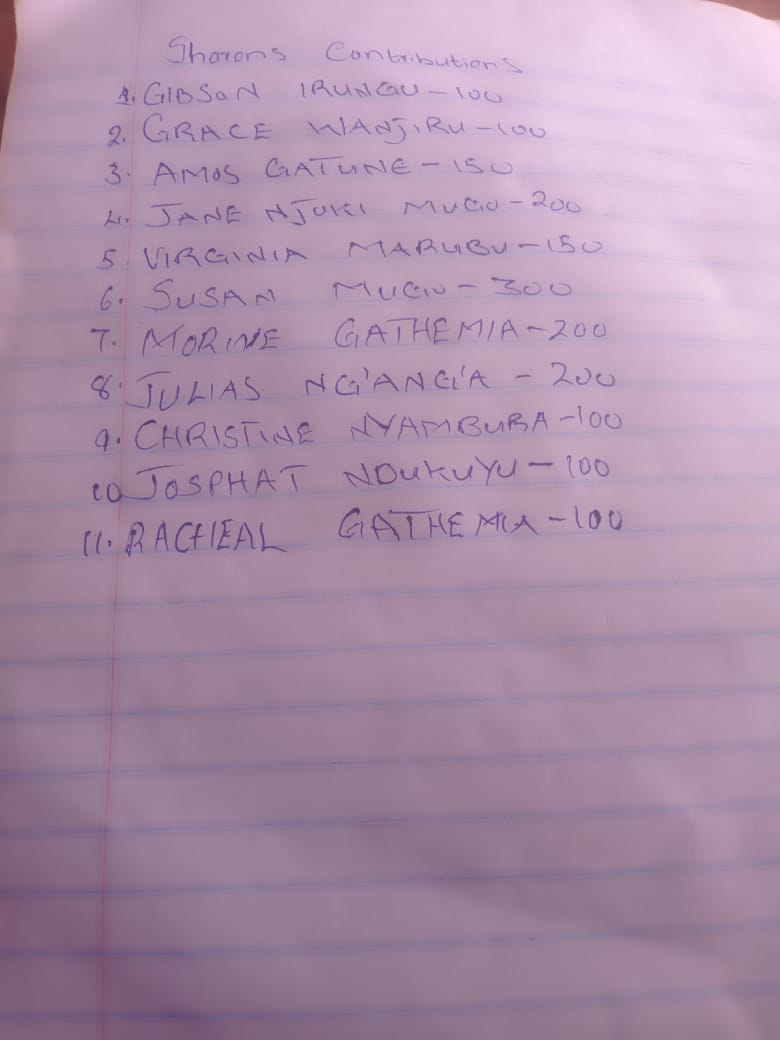 Sharons Contributions
1. GIBSON IRUNGU - 100
2. GRACE WANJIRU - 100
3. AMOS GATUNE - 150
4. JANE NJUKI MUGO - 200
5. VIRGINIA MARUBU - 150
6. SUSAN MUGO - 300
7. MORINE GATHEMIA - 200
8. JULIAS NG'ANG'A - 200
9. CHRISTINE NYAMBURA - 100
10 JOSPHAT NDUKUYU - 100
11. RACHEAL GATHEMIA - 100